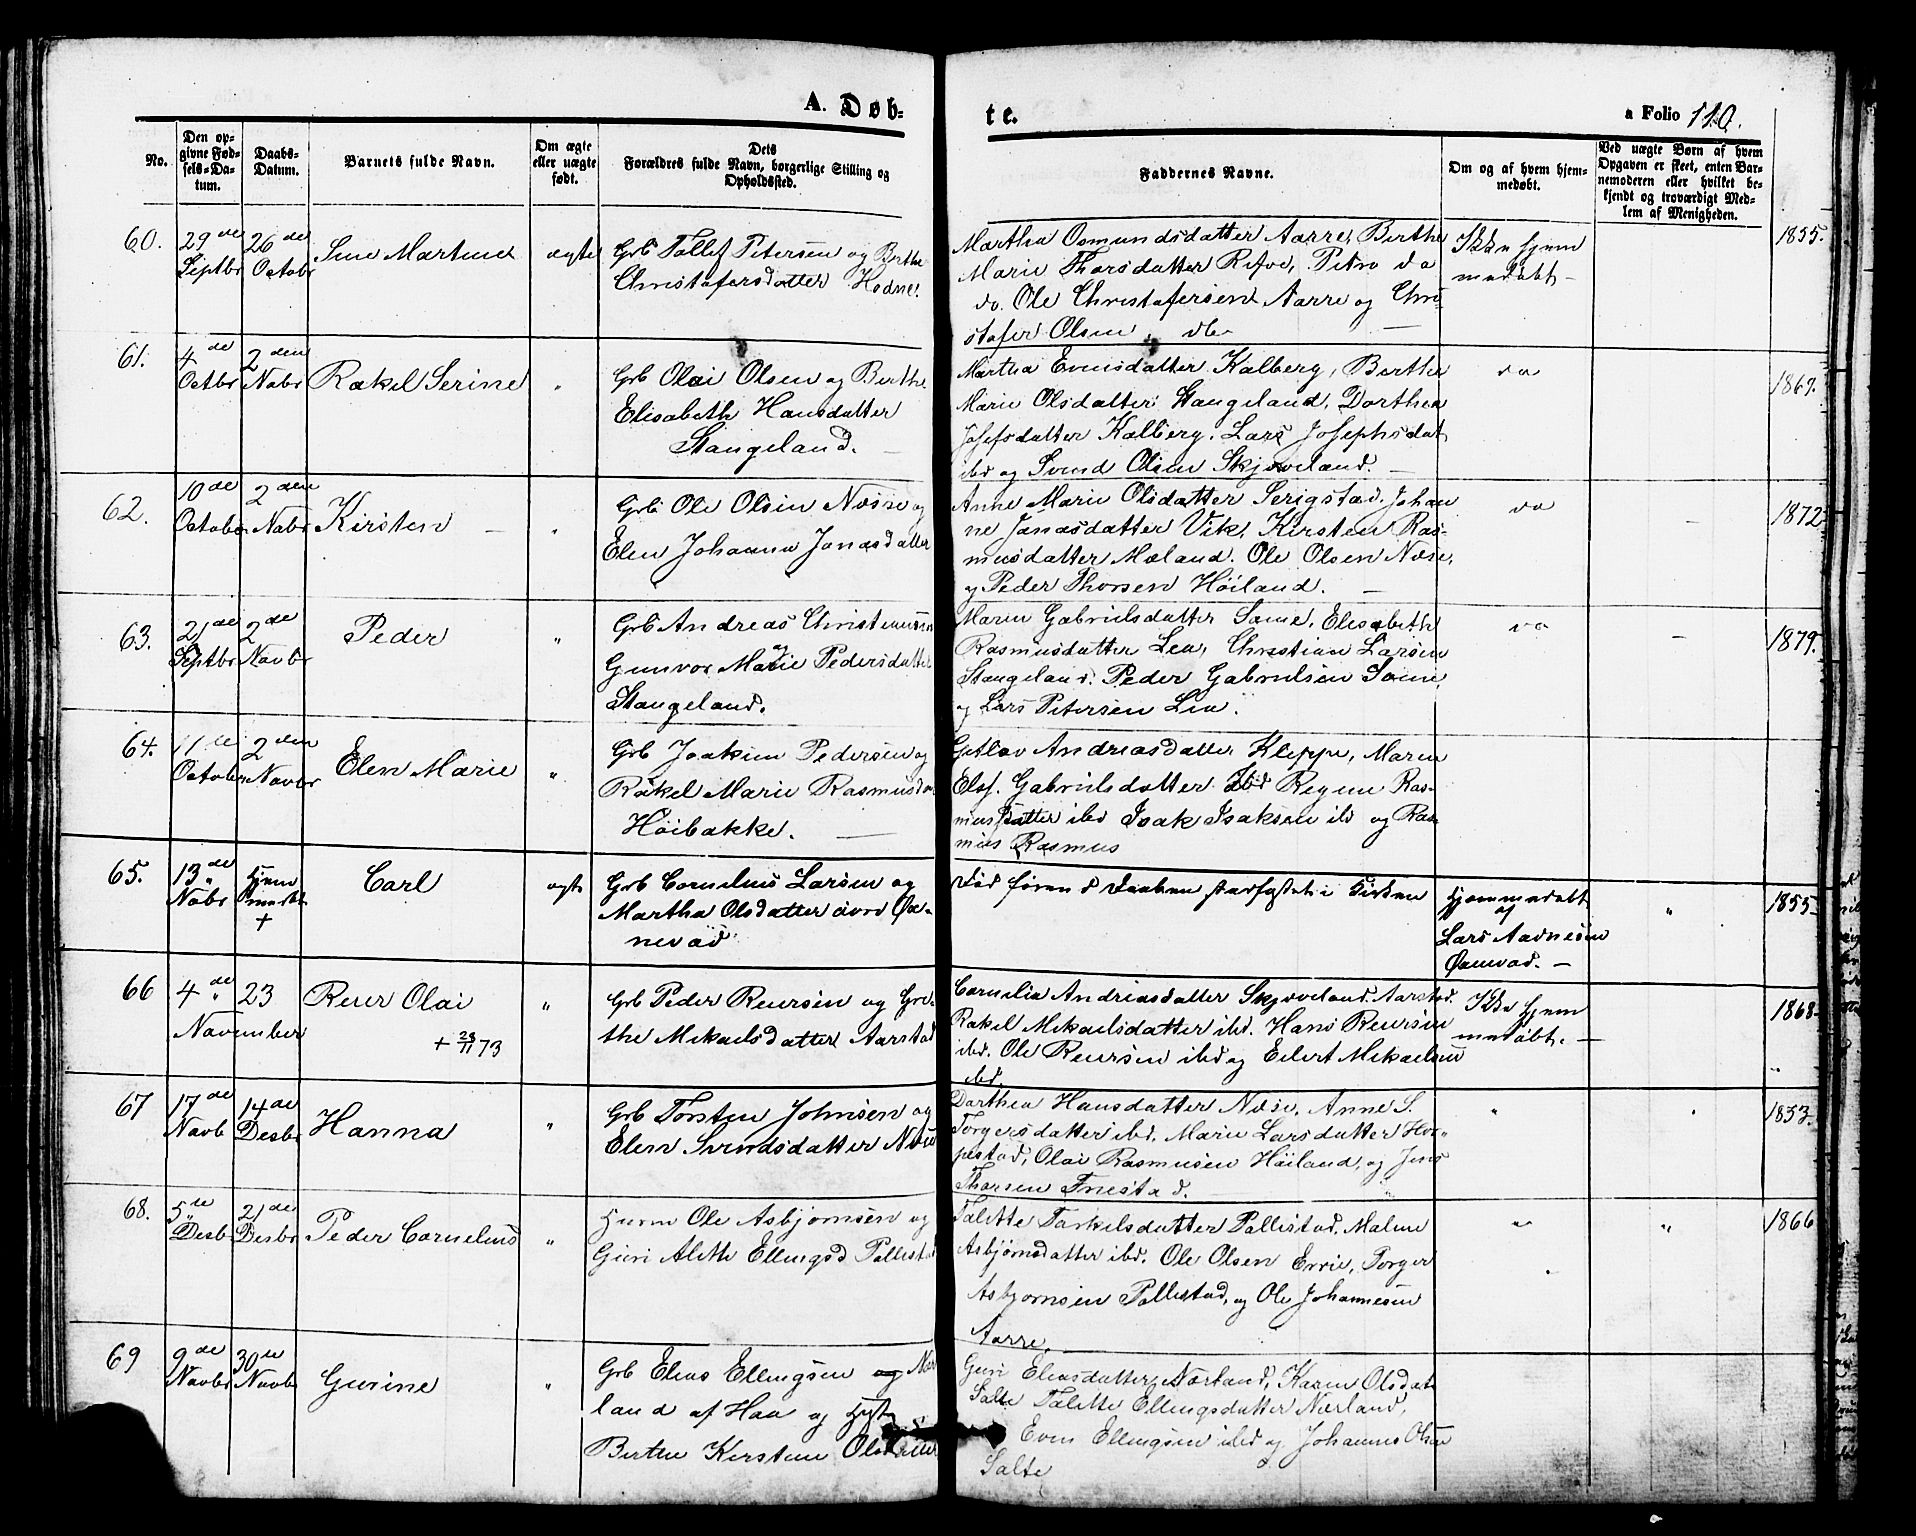 A. Døb-
te.
a Folio 110.
No.
Den op-
givne Fød-
sels-Da-
tum.
Daabs-
Datum.
Barnets fulde Navn.
Om ægte
eller uægte
født.
Dets
Forældres fulde Navn, borgerlige Stilling og
Opholdssted.
Faddernes Navne.
Om og af hvem hjem-
medøbt.
Ved uægte Børn af hvem
Opgaven er skeet, enten Bar-
nemoderen eller hvilket be-
kjendt og troværdigt Med-
lem af Menigheden.
60.
29de
Septbr
26de
Octobr
Sine Martine
ægte
Grb Tollef Petersen og Berthe
Christafersdatter Hodne.
Martha Osmundsdatter Aarre, Berthe
Marie Thorsdatter Refve, Petro do
do. Ole Christafersen Aarre og Chri-
stafer Olsen do
Ikke hjem
medøbt
1855.
61.
4de
Octbr
2den
Nobr
Rakel Serine
"
Grb Olai Olsen og Berthe
Elisabeth Hansdatter
Stangeland.
Martha Evensdatter Kalberg, Berthe
Marie Olsdatter Stangeland, Dorthea
Josefsdatter Kalberg. Lars Josephsdat
ibd og Svend Olsen Skjæveland.
do
1867.
62.
10de
October
2den
Nobr
Kirsten
"
Grb Ole Olsen Næsse og
Elen Johanna Jonasdatter
Anne Marie Olsdatter Serigstad. Johan
ne Janasdatter Vik, Kirsten Ras-
musdatter Mæland. Ole Olsen Næse,
og Peder Thorsen Höiland.
do
1872
63.
21de
Septbr
2de
Novbr
Peder
"
Grb Andreas Christensen
og
Gunvor Marie Pedersdatter
Stangeland.
Maren Gabrielsdatter Some, Elisabeth
Rasmusdatter Lea, Christian Larsen
Stangeland. Peder Gabrielsen Some,
og Lars Petersen Lea.
do
1879.
64.
11te
October
2den
Novbr
Elen Marie
"
Grb Joakim Pedersen og
Rakel Marie Rasmusda
Höibakke.
Andreasdatter Kleppe, Maren
Els. Gabrielsdatter Ibid Regine Ras-
musdatter ibd Isak Isaksen ibd og Ras
mus Rasmus
65.
13de
Nobr
Hjem
medøbt
+
Carl
ægte
Grb Cornelius Larsen og
Martha Olsdatter övre Øx-
nevad
Död förend Daaben stadfæstet i Kirken
Hjemmedøbt
af
Lars Aadnesen
Øxnevad.
"
1855.
66
4de
November
23
Reier Olai
+ 28/11 73
"
Grb Peder Reiersen og Gre-
the Mikaelsdatter Aarstad
Cornelia Andreasdatter Skjæveland. Aarstad.
Rakel Mikaelsdatter ibd. Hans Reiersen
ibd. Ole Reiersen ibd og Eilert Mikaelsen
ibd.
Ikke hjem
medøbt.
1868
67
17de
Novb
14de
Desbr
Hanna
"
Grb Torsten Johnsen og
Elen Svendsdatter Næse
Dorthea Hansdatter Næse. Anne S.
Torgersdatter ibd. Marie Larsdatter Hor-
pestad, Olai Rasmusen Höiland, og Jens
Thorsen Fnestad.
"
1853.
68.
5te
Desbr
21de
Desbr
Peder Cornelius
"
Huusm Ole Asbjornsen og
Guri Alette Ellingsd Pallestad
Talette Tarkilsdatter Pallestad, Malene
Asbjørnsdatter ibd. Ole Olsen Ervie, Torger
Asbjornsen Pallestad, og Ole Johannesen
Aarre.
"
"
1866
69
9de
Novbr
30te
Novbr
Gurine
"
Grb Elias Ellingsen og Nær
land af Haa og Hust
Berthe Kirstine Olsdatter
Guri Eliasdatter Nærland, Karen Olsdat
Salte Talette Ellingsdatter Nærland,
Even Ellingsen ibd og Johannes Olsen
Salte